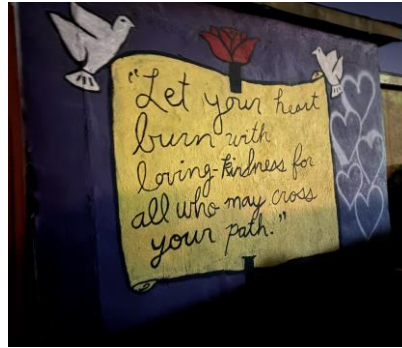 "Let your heart
burn with
loving-kindness for
all who may cross
your path."